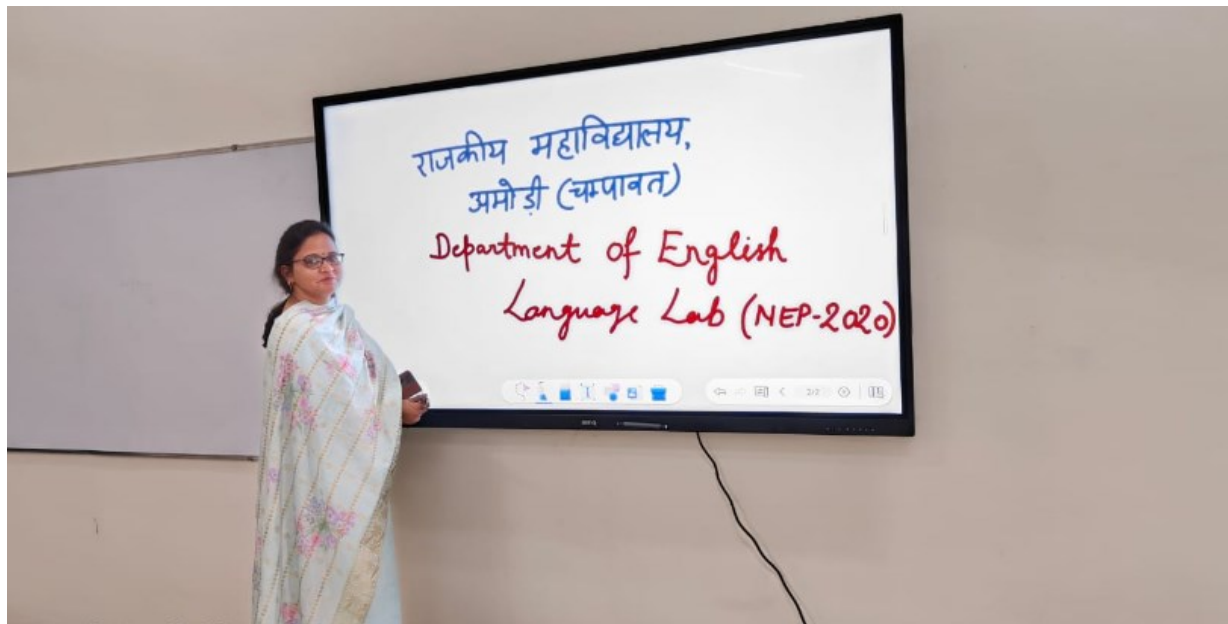 राजकीय महाविद्यालय,
अमोड़ी (चम्पावत)
Department of English
Language Lab (NEP-2020)
2/2
BenQ